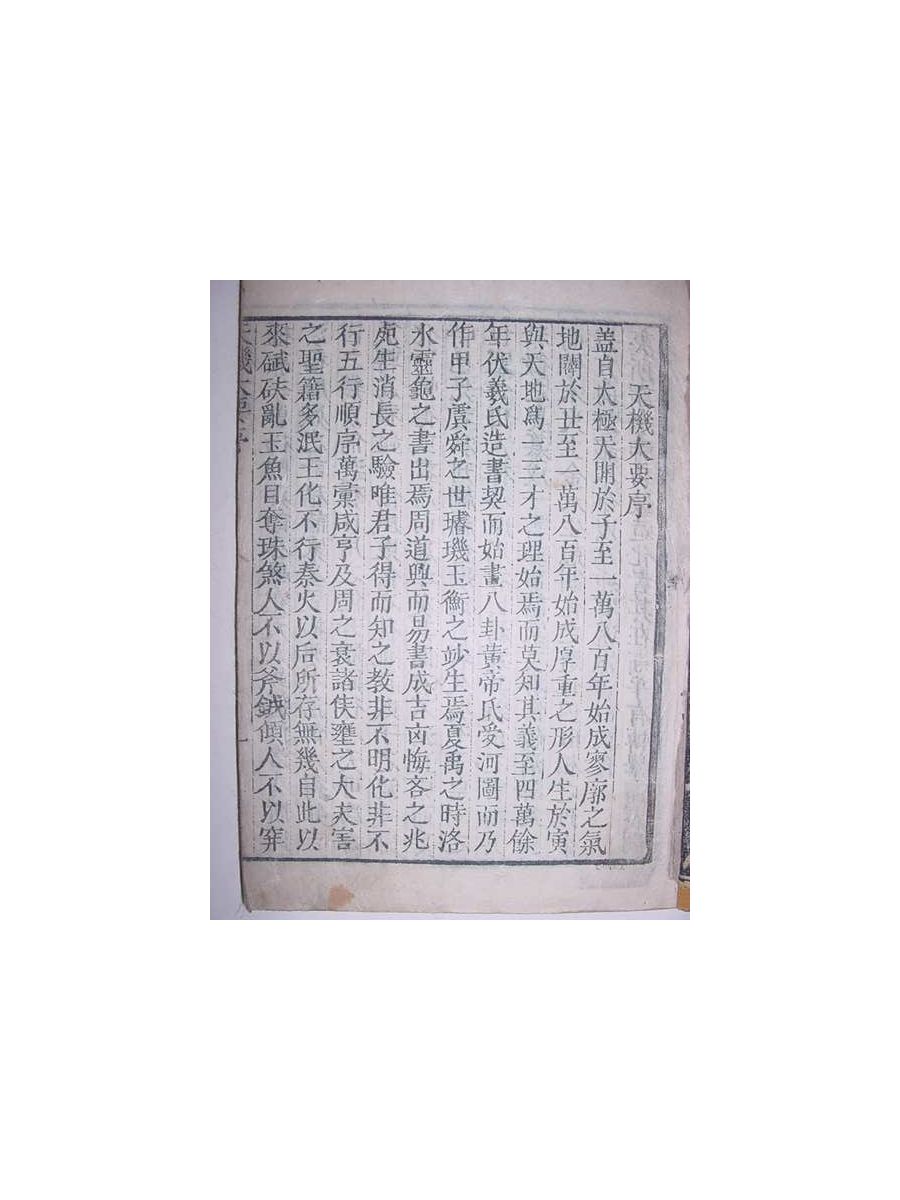 天機大要序
盖自太極天開於子至一萬八百年始成寥廓之氣
地闢於丑至一萬八百年始成厚重之形人生於寅
與天地爲一三才之理始焉而莫知其義至四萬餘
年伏羲氏造書契而始畫八卦黃帝氏受河圖而乃
作甲子虞舜之世璿璣玉衡之竗生焉夏禹之時洛
水靈龜之書出焉周道興而易書成吉凶悔吝之兆
死生消長之驗唯君子得而知之教非不明化非不
行五行順序萬彙咸亨及周之衰諸侯壅之大夫害
之聖籍多泯王化不行秦火以后所存無幾自此以
來碔砆亂玉魚目奪珠煞人不以斧鉞傾人不以穽
天機大要序 一